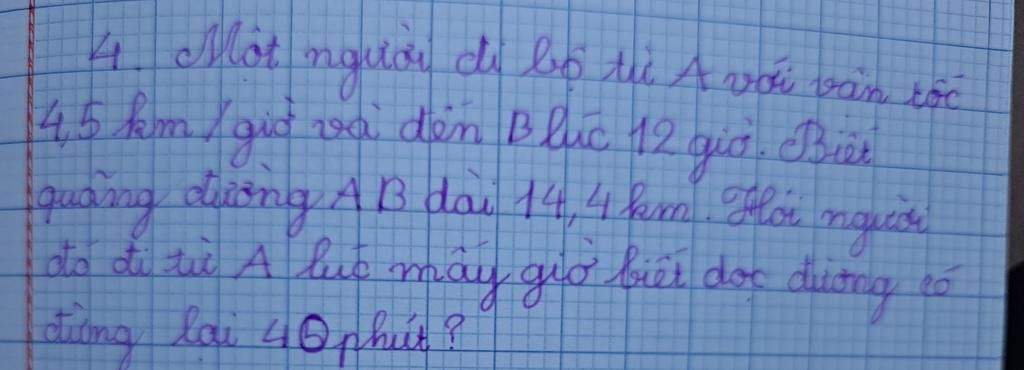 4. Một người đi bộ từ A với vận tốc
4,5 km/giờ và đến B lúc 12 giờ. Biết
quãng đường AB dài 14,4 km. Hỏi người
đó đi từ A lúc mấy giờ biết dọc đường có
dừng lại 40 phút?